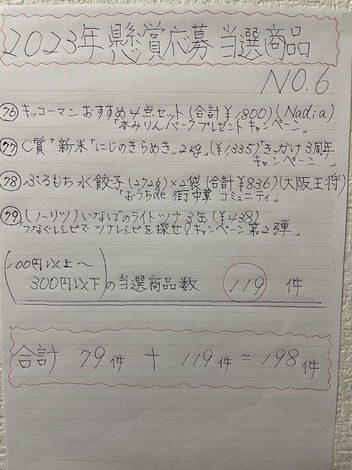 2023年 懸賞応募 当選商品
NO.6
76 キッコーマン おすすめ4点セット (合計¥1800) (Nadia)
「本みりんパークプレゼントキャンペーン」
77 C賞「新米"にじのきらめき" 2kg」(¥1335)"きっかけ3周年
キャンペーン"
78 ぷるもち水餃子(272g)×2袋(合計¥836)(大阪王将)
「おうちde 街中華 コミュニティ」
79 (ノーリツ)いなばのライトツナ3缶(¥438)
つなぐレシピでツナレシピを探せ!キャンペーン第2弾」
00円以上〜
300円以下)の当選商品数 119 件
合計 79件 + 119件 = 198件